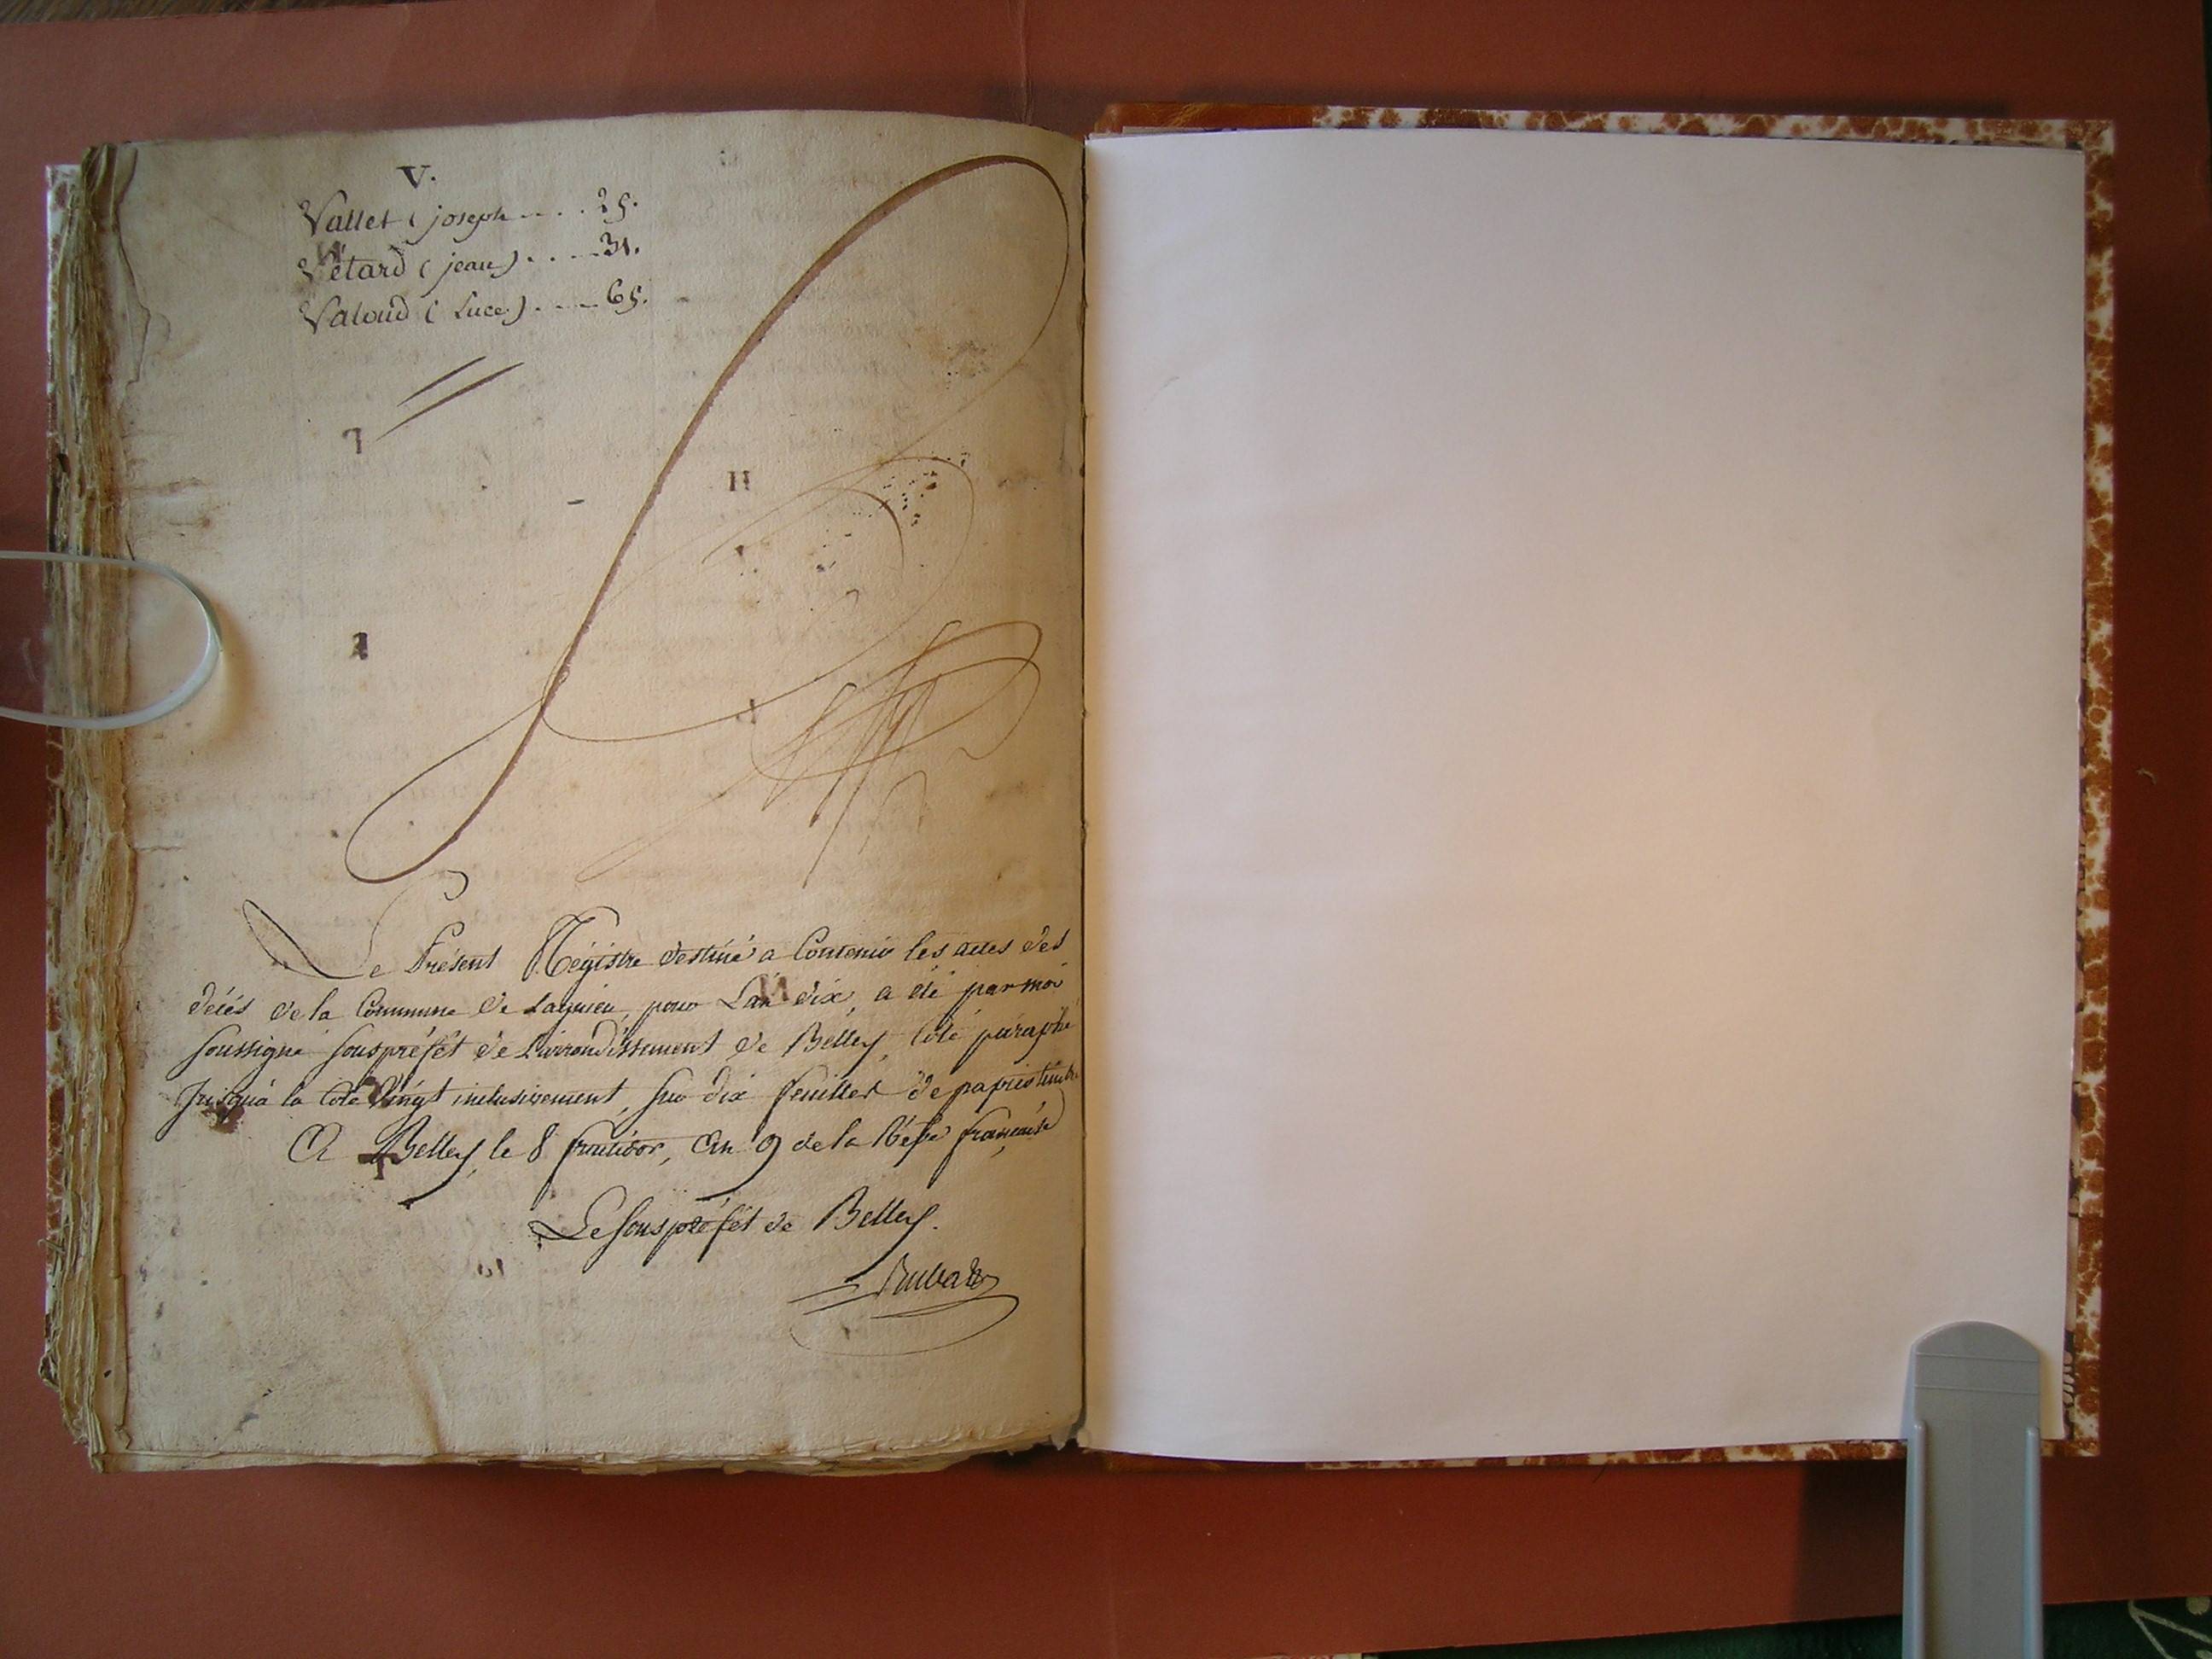 V.
Vallet (joseph .... 25.
Vétard (jean) .... 31.
Valoud (Luce) .... 65.
Le Présent Régistre destiné a Contenir les actes des
décés de la Commune de Lagnieu, pour L'an dix, a été par moi
soussigné souspréfét de L'arrondissement de Belley, Coté paraphé
jusqu'a la Cote Vingt inclusivement, sur dix feuilles de papier timbré
A Belley, le 8 fructidor, An 9 de la Répe française
Le souspréfét de Belley.